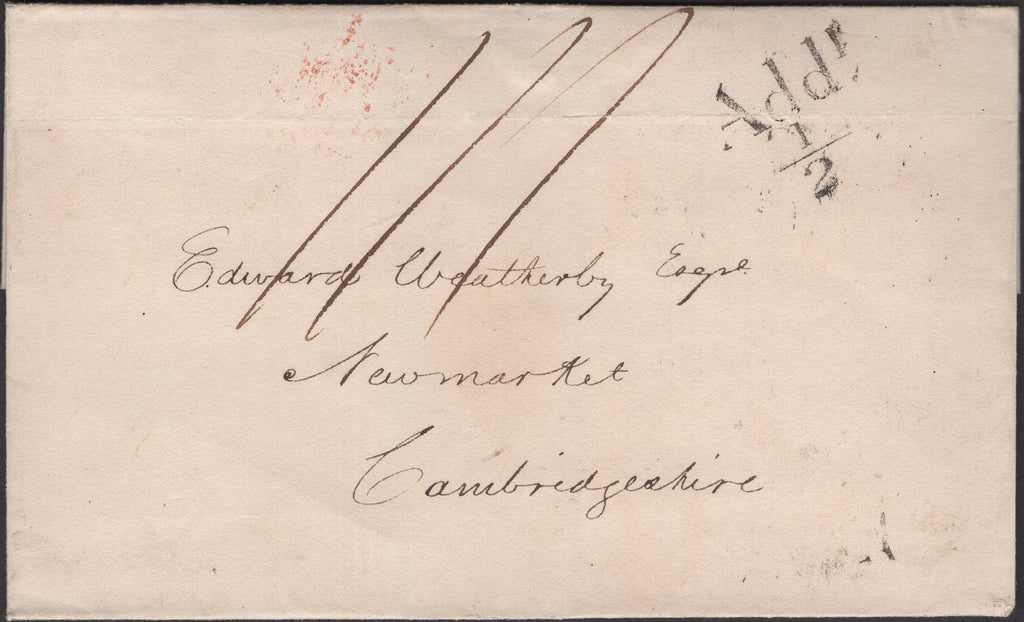 Addl
1/2
Edward Weatherby Esqre
Newmarket
Cambridgeshire